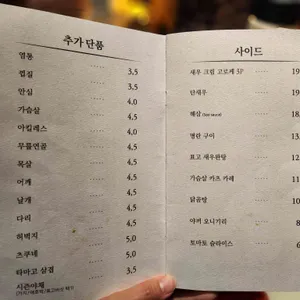 추가 단품
염통 ····· 3.5
껍질 ····· 3.5
안심 ····· 4.0
가슴살 ····· 4.0
아킬레스 ····· 4.5
무릎연골 ····· 4.5
목살 ····· 4.5
어깨 ····· 4.5
날개 ····· 4.5
다리 ····· 4.5
허벅지 ····· 5.0
츠쿠네 ····· 5.0
타마고 삼겹 ····· 3.5
시즌야채
사이드
새우 크림 고로케 5P ····· 19
단새우 ····· 19
해삼 ····· 18.
명란 구이 ····· 13.
표고 새우완탕 ····· 12.
가슴살 카츠 카레 ····· 12.
닭곰탕 ····· 10.
야끼 오니기리 ····· 8.
토마토 슬라이스 ····· 6